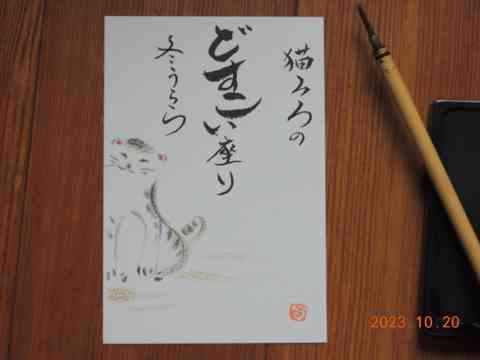 猫ろろの
どすこい座り
冬うらら
2023.10.20